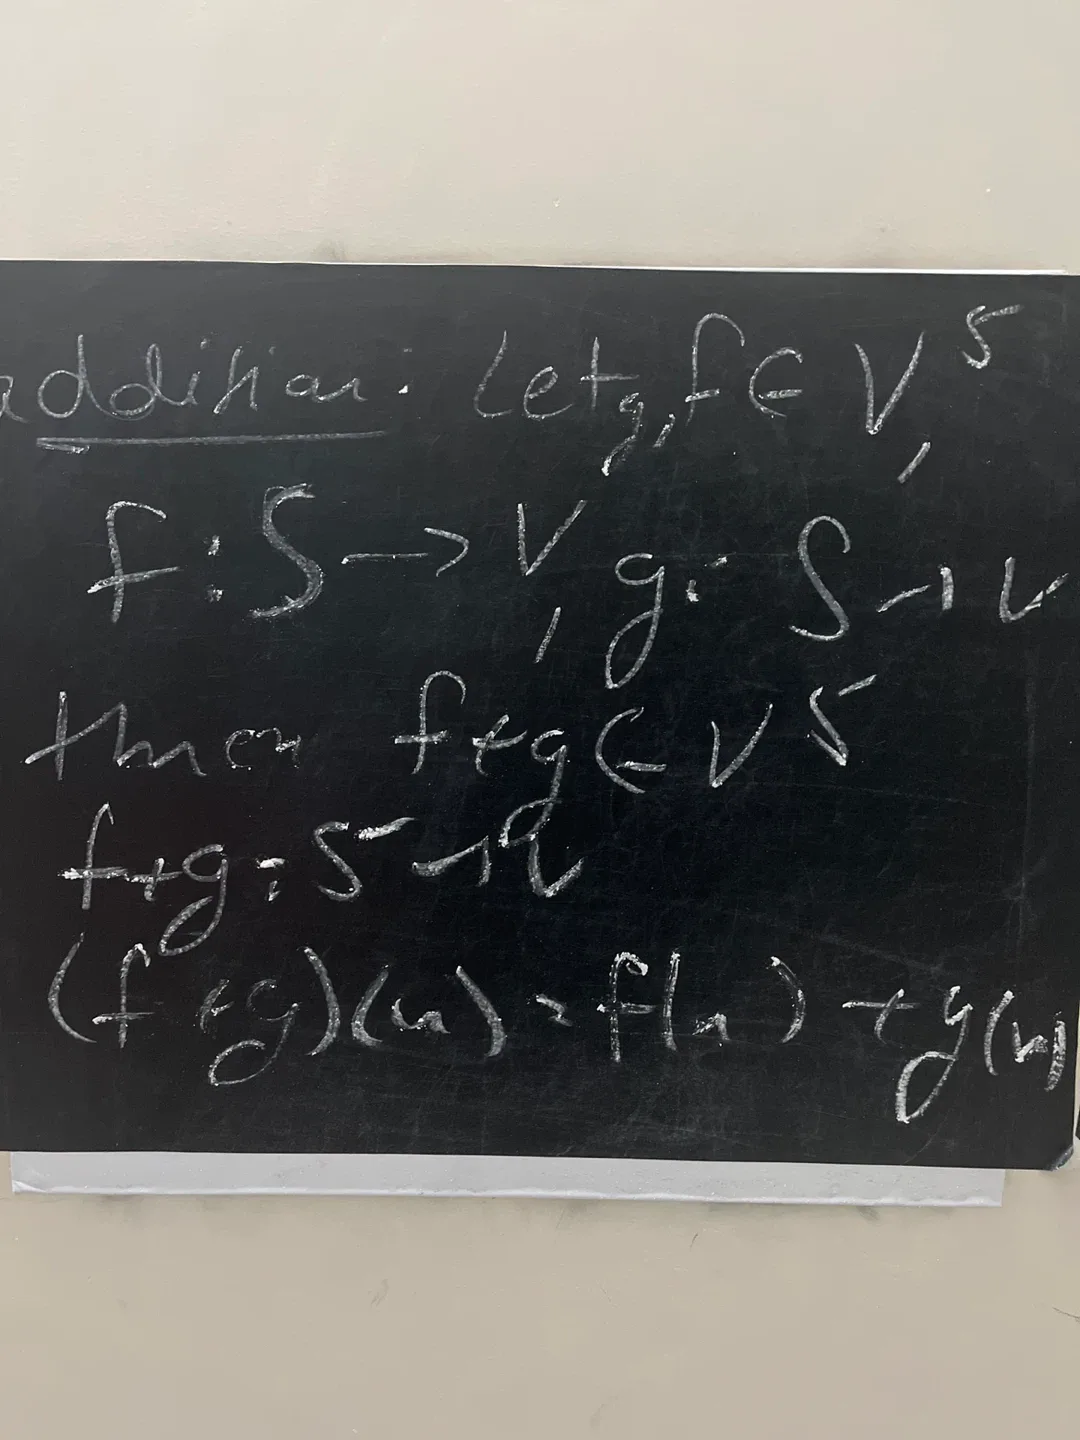 addition: Let g, f ∈ V^S,
f : S → V, g : S → V
then f+g ∈ V^S
f+g : S → V
(f+g)(x) = f(x) + g(x)